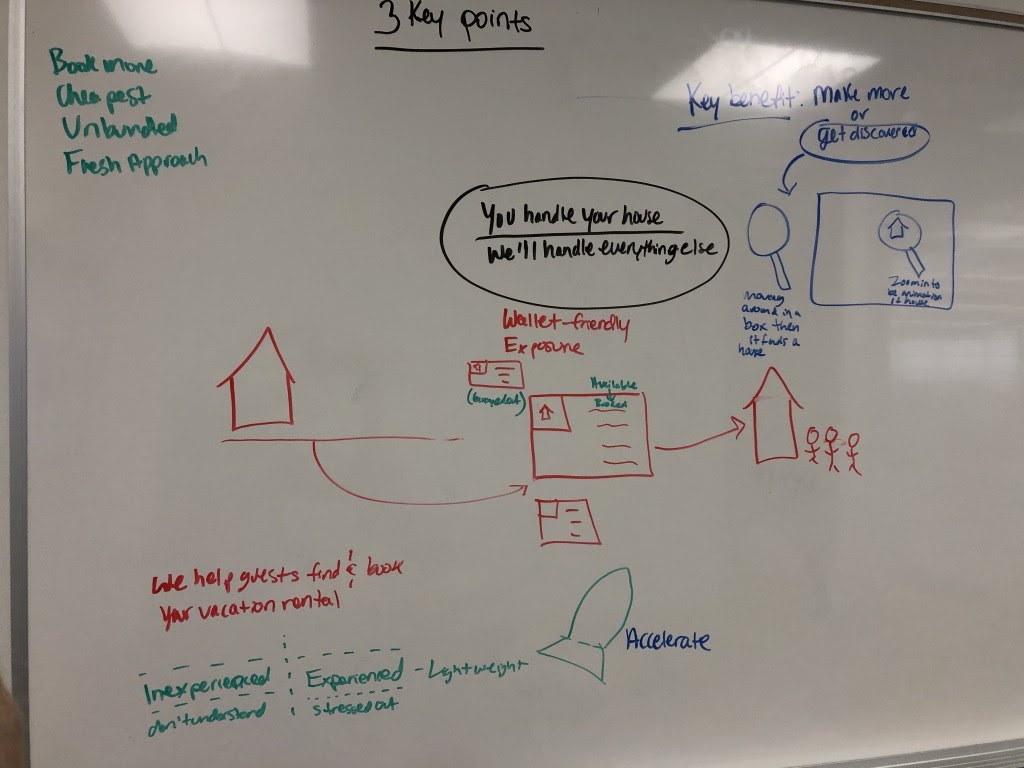 3 Key points
Book more
Cheapest
Unbundled
Fresh Approach
Key benefit: Make more
or
get discovered
You handle your house
We'll handle everything else
moving
around in a
box then
it finds a
house
Zoom in to
be animation
of house
Wallet-friendly
Exposure
(greyed out)
Available
Booked
We help guests find & book
your vacation rental
Inexperienced
don't understand
Experienced
stressed out
- Lightweight
Accelerate